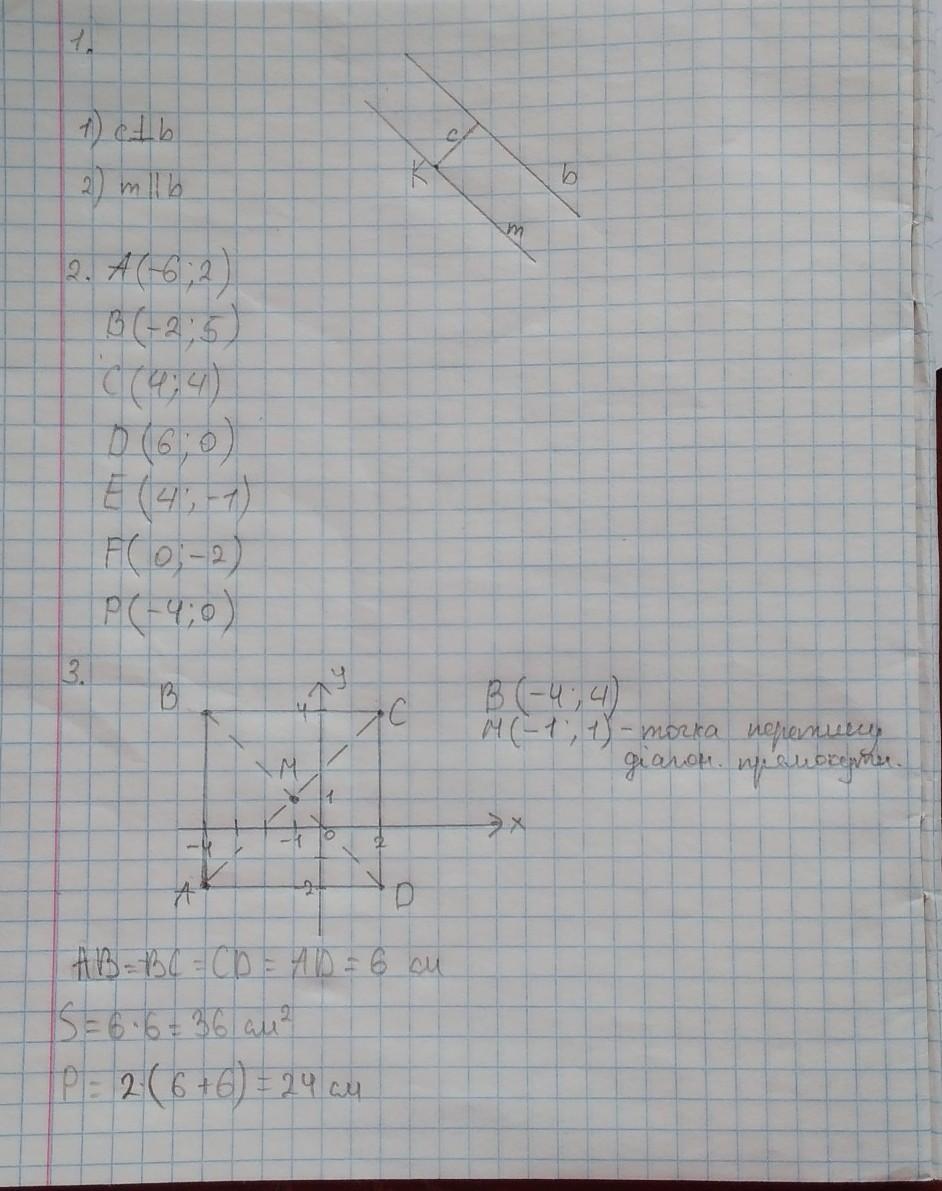 1.
1) c⊥b
2) m||b
c
K
b
m
2. A(-6;2)
B(-2;5)
C(4;4)
D(6;0)
E(4;-1)
F(0;-2)
P(-4;0)
3.
B
4
y
C
M
1
-4
-1
0
2
x
A
-2
D
B(-4;4)
M(-1;1) - точка перетину
діагон. прямокутн.
AB=BC=CD=AD=6 см
S=6·6=36 см²
P=2·(6+6)=24 см